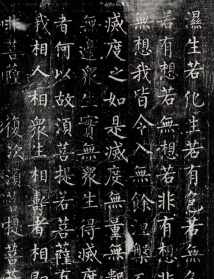 濕生若化生若有色若無
若有想若無想若非有想
無想我皆令入無餘涅槃而
滅度之如是滅度無量無數
無邊眾生實無眾生得滅度
者何以故須菩提若菩薩有
我相人相眾生相壽者相
非菩薩復次須菩提菩